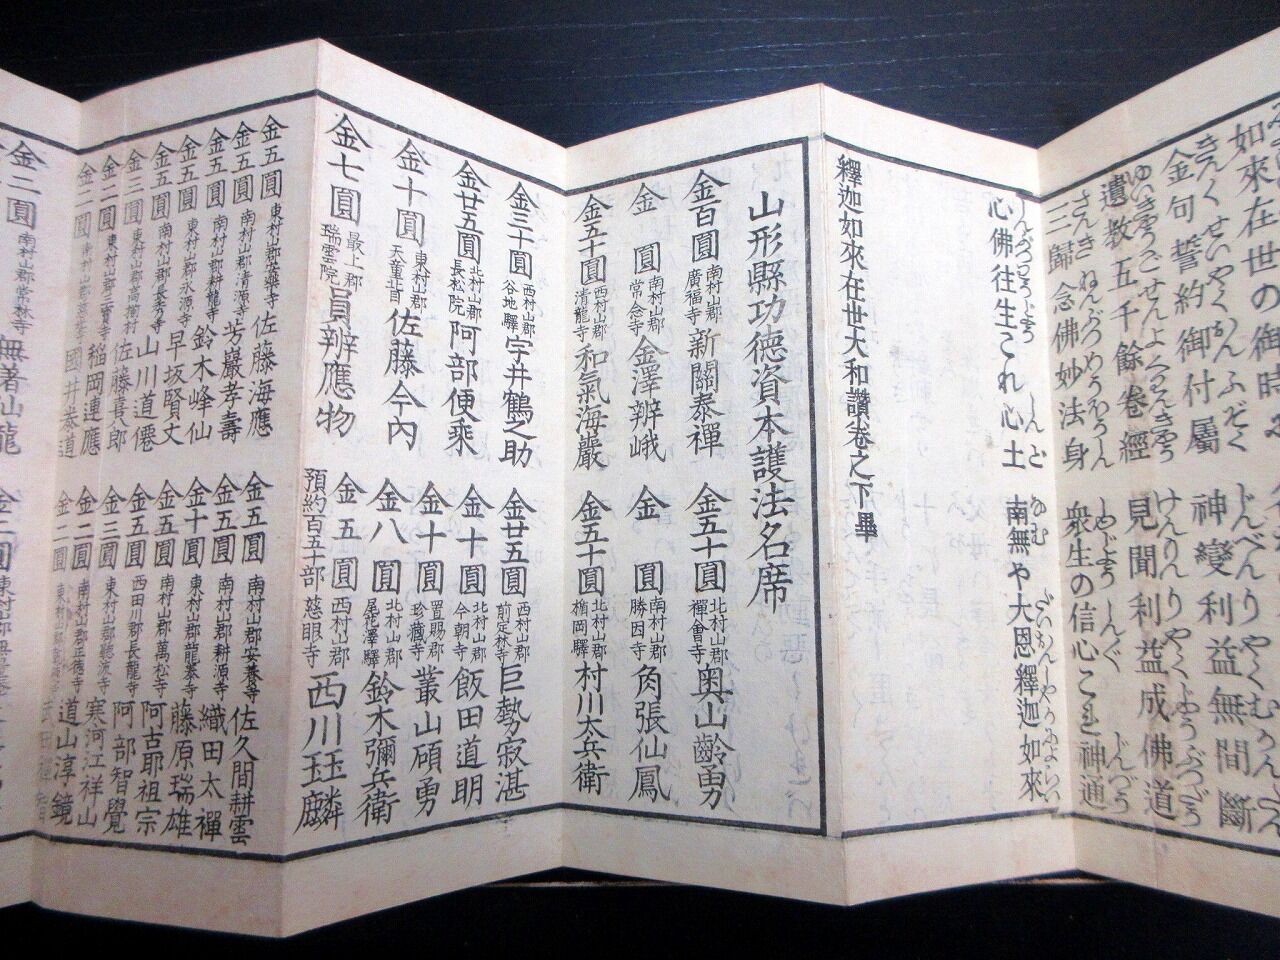 如來在世の御時
金句誓約御付屬 神變利益無間斷
きんくせいやくおんふぞく じんべんりやくむけんだん
遺教五千餘卷經 見聞利益成佛道
三歸念佛妙法身 衆生の信心これ神通
心佛往生これ心土 南無や大恩釋迦如來
釋迦如來在世大和讚卷之下畢
山形縣功徳資本護法名席
金百圓 南村山郡廣福寺 新關泰禪
金五十圓 北村山郡禪會寺 奥山齡勇
金圓 南村山郡常念寺 金澤辨峨
金圓 南村山郡勝因寺 角張仙鳳
金五十圓 西村山郡清龍寺 和氣海嚴
金五十圓 北村山郡楯岡驛 村川太兵衛
金三十圓 西村山郡谷地驛 宇井鶴之助
金廿五圓 西村山郡前定林寺 巨勢寂湛
金廿五圓 北村山郡長松院 阿部便乘
金十圓 北村山郡今朝寺 飯田道明
金十圓 東村山郡天童 佐藤今内
金十圓 置賜郡珍藏寺 叢山碩勇
金七圓 最上郡瑞雲院 員辨應物
金八圓 北村山郡尾花澤驛 鈴木彌兵衛
金五圓 西村山郡慈眼寺 西川玉麟
預約百五十部
金五圓 東村山郡安藥寺 佐藤海應
金五圓 南村山郡安養寺 佐久間耕雲
金五圓 南村山郡清源寺 芳巖孝壽
金五圓 南村山郡耕源寺 織田太禪
金五圓 南村山郡耕龍寺 鈴木峰仙
金十圓 東村山郡龍泰寺 藤原瑞雄
金五圓 東村山郡永源寺 早坂賢丈
金五圓 南村山郡萬松寺 阿古耶祖宗
金五圓 南村山郡長秀寺 山川道僊
金五圓 西田川郡長龍寺 阿部智覺
金三圓 東村山郡高擶村 佐藤喜八郎
金三圓 東村山郡聽流寺 寒河江祥山
金二圓 東村山郡三寶寺 稲岡連應
金二圓 南村山郡正德寺 道山淳鏡
金二圓 國井泰道
金二圓 武田
金二圓 南村山郡常林寺 無著仙龍
金二圓 東村山郡